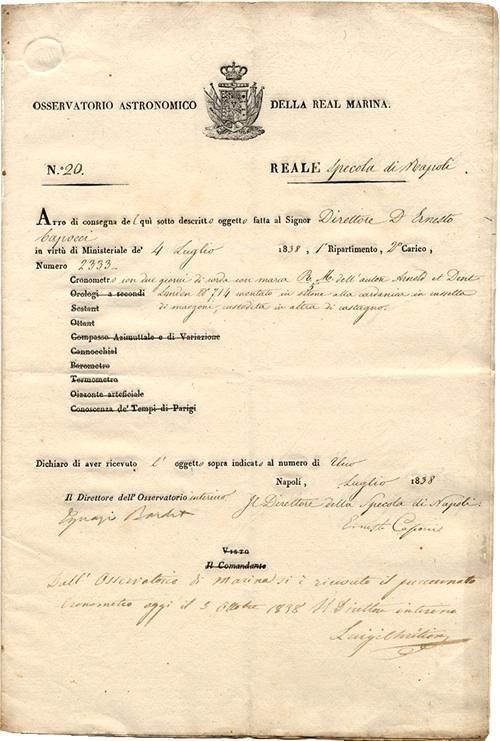 OSSERVATORIO ASTRONOMICO DELLA REAL MARINA.
N.º 20. REALE Specola di Napoli
Atto di consegna del quì sotto descritto oggetto fatta al Signor Direttore D. Ernesto
Capocci
in virtù di Ministeriale de' 4 Luglio 1838, 1º Ripartimento, 2º Carico,
Numero 2333
Cronometro con due giorni di corda con marca R. M. dell'autore Arnold et Dent
Orologi a secondi London Nº 714 montato in ottone alla cardanica in cassetta
Sestant di mogoni, custodita in altra di castagno.
Ottant
Compasso Azimuttale e di Variazione
Cannocchial
Barometro
Termometro
Oizzonte arteficiale
Conoscenza de' Tempi di Parigi
Dichiaro di aver ricevuto l' oggetto sopra indicato al numero di Uno
Napoli, Luglio 1838
Il Direttore dell'Osservatorio interino Il Direttore della Specola di Napoli
Ernesto Capocci
Visto
Il Comandante
Dall'Osservatorio di Marina si è ricevuto il
Cronometro oggi il 5 Ottobre 1838 Il Direttore interino